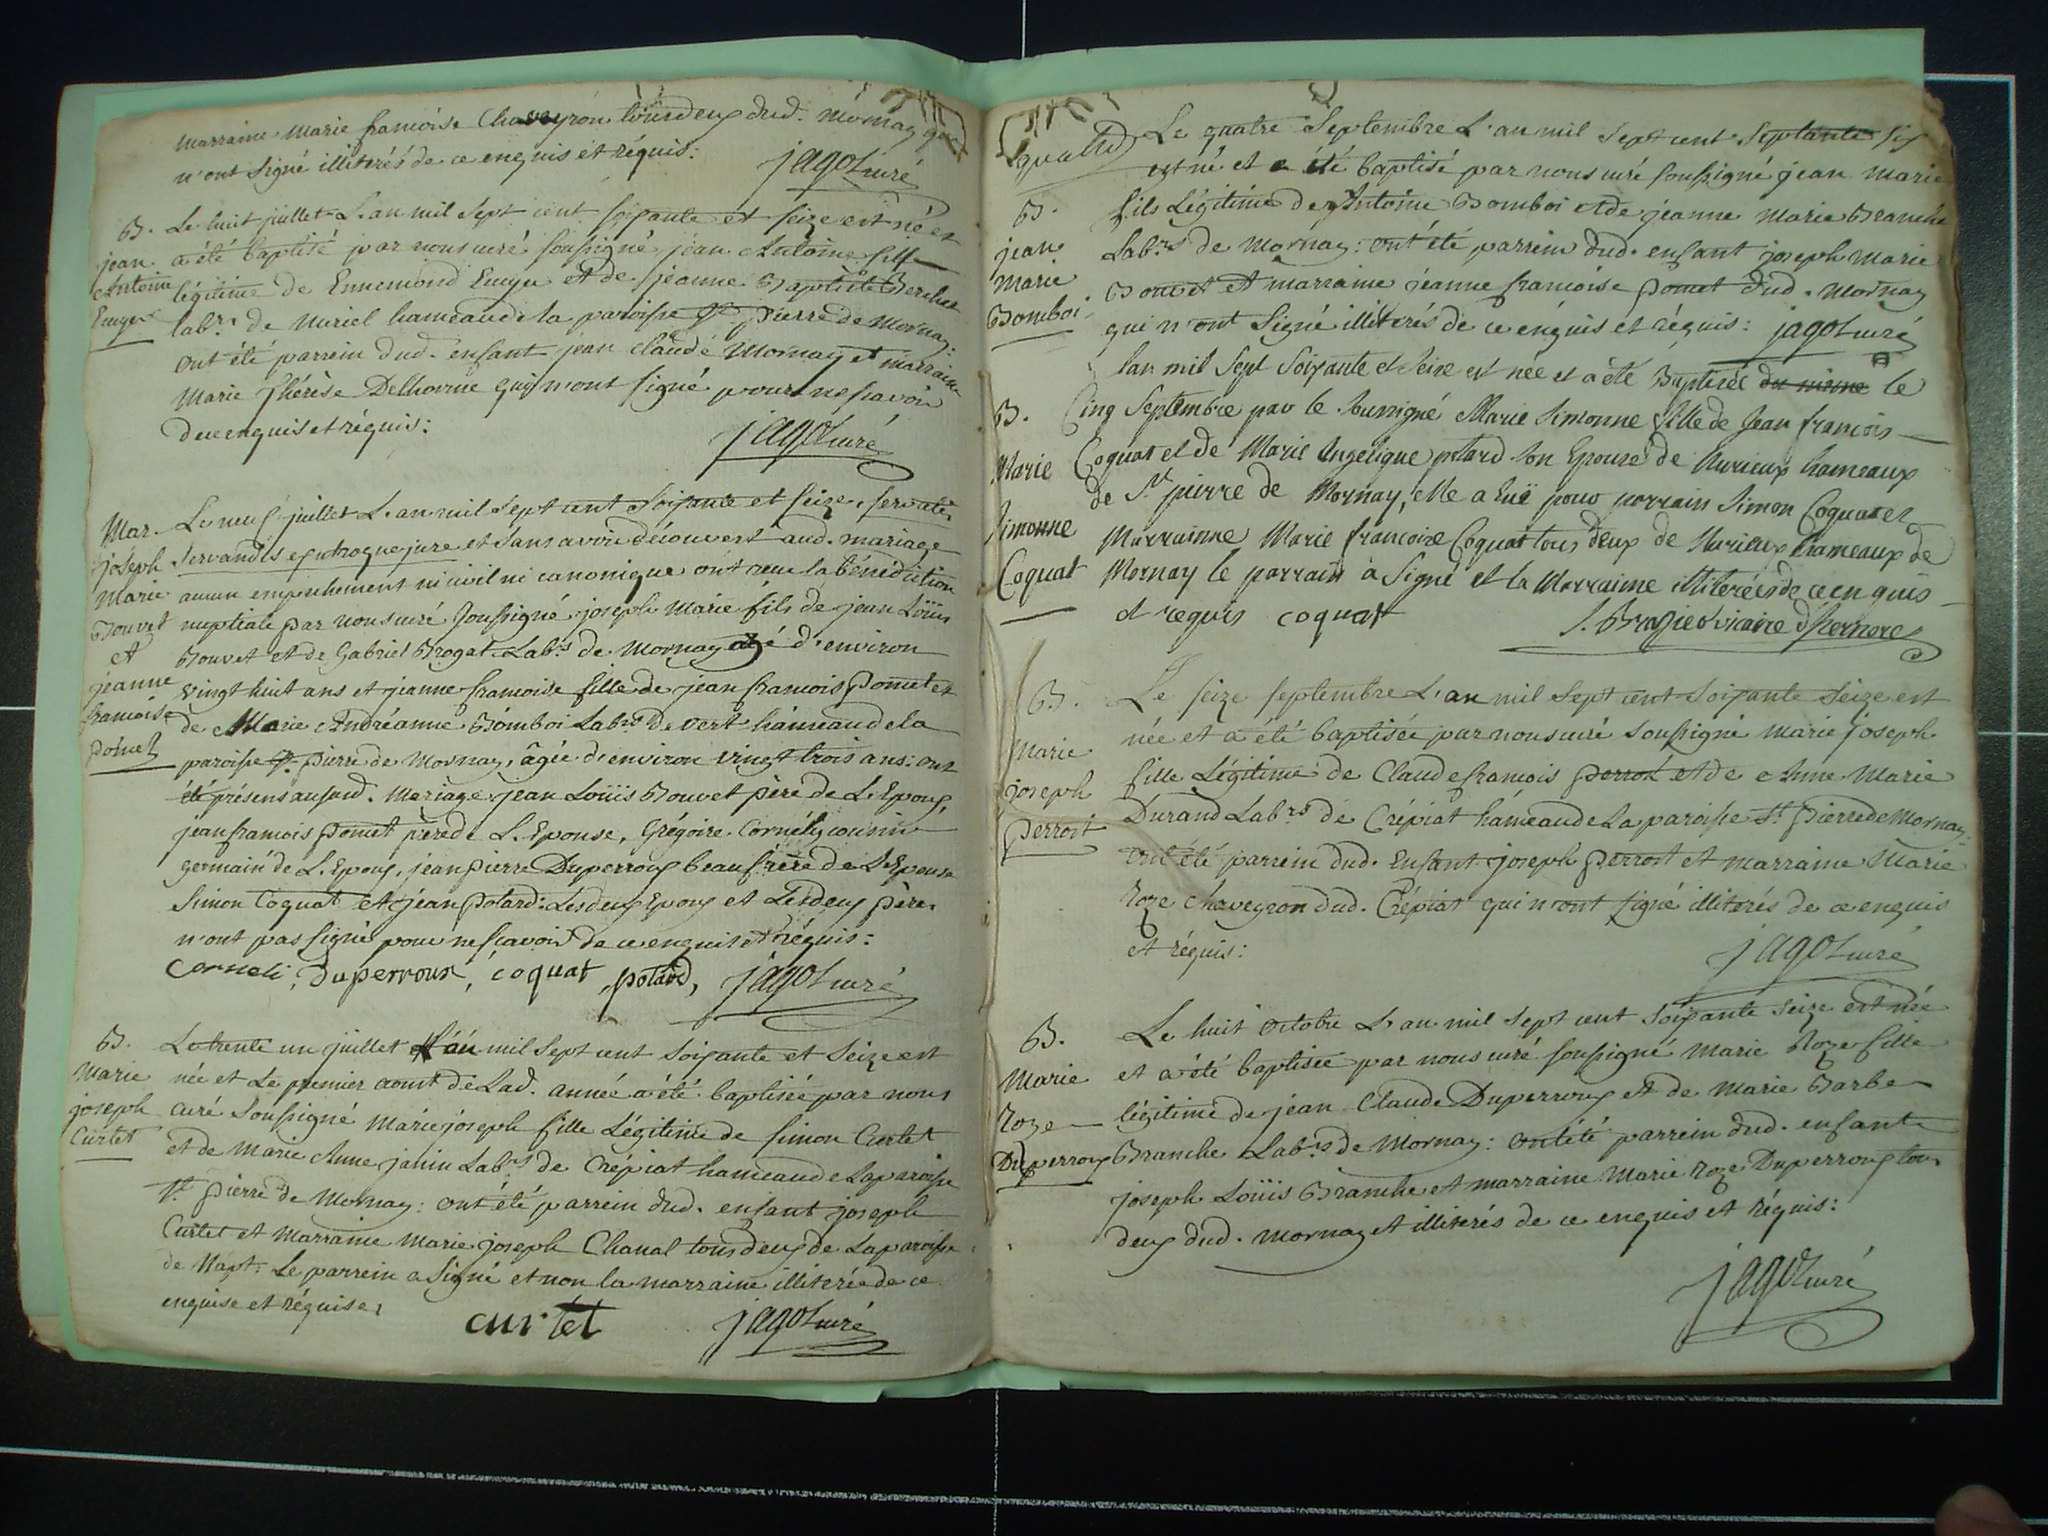 marraine Marie francoise Chaveyron tousdeux dud. mornay qui
n'ont signé illiterés de ce enquis et réquis: jagot curé
B. Le huit juillet L'an mil sept cent soixante et seize est né et
jean a été baptisé par nous curé soussigné jean Antoine fils
Antoine légitime de Ennemond Euvyer et de jeanne Baptiste Bercher
Euvyer labrs de Nuriel hameau de la paroisse St pierre de Mornay:
ont été parrein dud. enfant jean claude Mornay et marraine
Marie thérèse Delhorme qui n'ont signé pour ne scavoir
de ce enquis et réquis:
jagot curé
Mar. Le neuf juillet L'an mil sept cent soixante et seize, servatis
joseph servandis ex utroque jure et sans avoir découvert aud. mariage
marie aucun empechement ni civil ni canonique ont recu la bénédiction
Bouvet nuptiale par nous curé soussigné joseph Marie fils de jean Loüis
et Bouvet et de Gabriel Brogat Labrs de Mornay agé d'environ
jeanne vingt huit ans et jeanne francoise fille de jean francois pomet et
francoise de Marie Andréanne Bomboi Labrs de vert hameau de la
pomet paroisse St pierre de Mornay, âgée d'environ vingt trois ans: ont
été présens aufsud. Mariage jean Loüis Bouvet père de L'Epoux,
jean francois pomet père de L'Epouse, Grégoire Cornély cousin
germain de L'Epoux, jean pierre Duperroux beau frère de L'Epouse
Simon Coquat et jean potard: Les deux Epoux et Les deux pères
n'ont pas signé pour ne scavoir de ce enquis et réquis:
Corneli, Duperroux, coquat, potard, jagot curé
B. Le trente un juillet L'an mil sept cent soixante et seize est
Marie née et Le premier aoust de Lad. année a été baptisée par nous
joseph curé soussigné Marie joseph fille Légitime de simon Curtet
Curtet et de Marie Anne janin Labrs de Crépiat hameau de La paroisse
St pierre de Mornay: ont été parrein dud. enfant joseph
Curtet et Marraine Marie joseph Chanal tous deux de La paroisse
de Napt: Le parrein a signé et non la marraine illiterée de ce
enquise et réquise,
curtet jagot curé
Le quatre Septembre L'an mil sept cent septante six
est né et a été baptisé par nous curé soussigné jean marie
B. fils Légitime de Antoine Bomboi et de jeanne Marie Branche
jean Labrs de Mornay: ont été parrein dud. enfant joseph Marie
Marie Bouvet et marraine jeanne francoise pomet dud. Mornay
Bomboi qui n'ont signé illiterés de ce enquis et réquis: jagot curé
lan mil sept soixante et seize est née et a été Baptisée du meme le
B. Cinq Septembre par le soussigné Marie Simonne fille de Jean francois
Marie Coquat et de Marie Angelique potard son Epouse de Nurieux hameaux
de St pierre de Mornay, elle a Euë pour parrain Simon Coquat et
Simonne Marrainne Marie francoise Coquat tous deux de Nurieux hameaux de
Coquat Mornay le parrain à signé et la Marrainne illiterée de ce enquis
et requis coquat
vicaire
B. Le seize septembre L'an mil sept cent soixante seize est
Marie née et a été baptisée par nous curé soussigné Marie joseph
joseph fille Légitime de Claude francois perrot et de Anne Marie
perrost Durand Labrs de Crépiat hameau de La paroisse St pierre de Mornay.
ont été parrein dud. Enfant joseph perrost et marraine Marie
roze Chaveyron dud. Crépiat qui n'ont signé illiterés de ce enquis
et réquis:
jagot curé
B. Le huit octobre L'an mil sept cent soixante seize est née
Marie et a été baptisée par nous curé soussigné Marie Roze fille
roze légitime de jean Claude Duperroux et de Marie Barbe
Duperroux Branche Labrs de Mornay: ont été parrein dud. enfant
joseph Loüis Branche et marraine Marie roze Duperroux tous
deux dud. Mornay et illiterés de ce enquis et réquis:
jagot curé